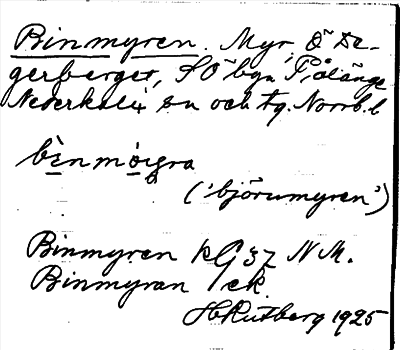 Binmyren. Myr, Ö De-
gerberget, SÖ bgn Pålänge
Nederkalix sn och tg. Norrb. l
bìnmỳıgra
('björnmyren')
Binmyren kG 37 NM.
Binmyran /ek.
HRutberg 1925